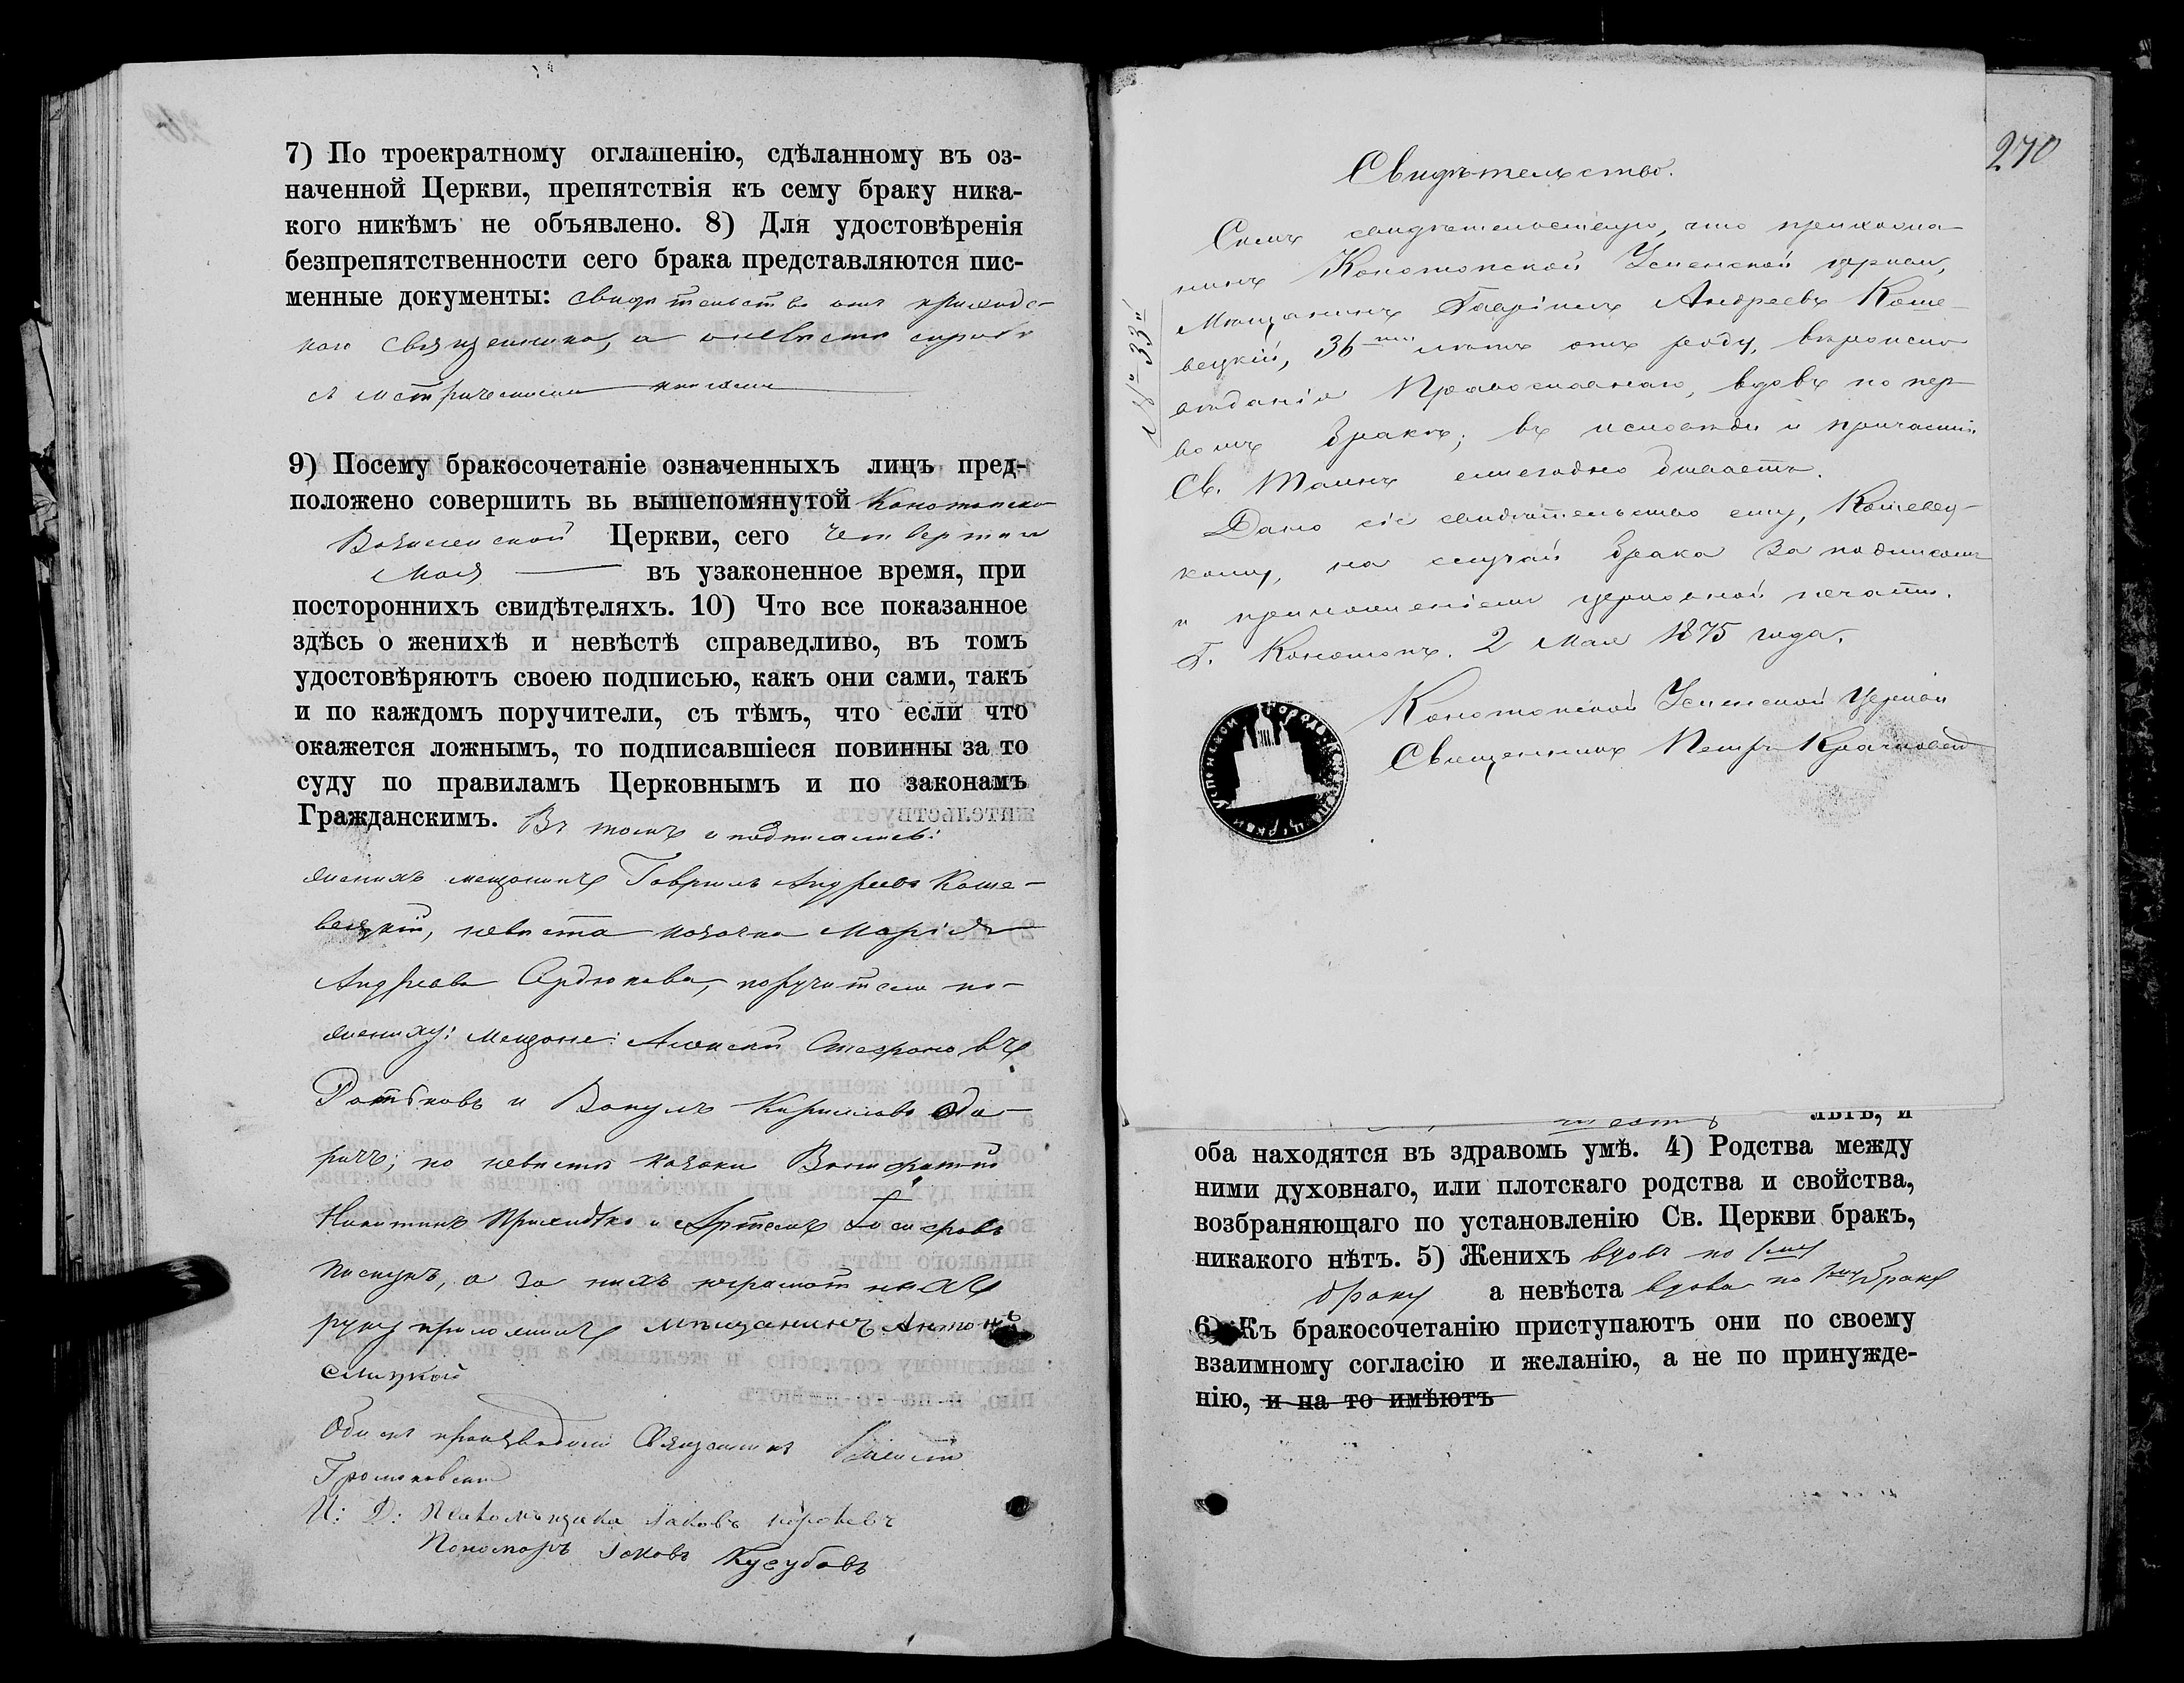 7) По троекратному оглашенію, сдѣланному въ оз-
наченной Церкви, препятствія къ сему браку ника-
кого никѣмъ не объявлено. 8) Для удостовѣренія
безпрепятственности сего брака представляются пис-
менные документы: свидѣтельство отъ приходс-
каго священника, а о невѣстѣ справка
съ метрическими книгами
9) Посему бракосочетаніе означенныхъ лицъ пред-
положено совершить вь вышепомянутой Конотопско
Вознесенской Церкви, сего четвертаго
Мая въ узаконенное время, при
постороннихъ свидѣтеляхъ. 10) Что все показанное
здѣсь о женихѣ и невѣстѣ справедливо, въ томъ
удостовѣряютъ своею подписью, какъ они сами, такъ
и по каждомъ поручители, съ тѣмъ, что если что
окажется ложнымъ, то подписавшіеся повинны за то
суду по правиламъ Церковнымъ и по законамъ
Гражданскимъ. Въ томъ и подписались:
женихъ мещанинъ Гаврилъ Андреевъ Коше-
вецкій, невѣста козачка Марія
Андреева Сердюкова, поручители по
жениху: мещане: Алексей Стефановъ
и Вакулъ Кириловъ
по невѣстѣ козаки
Никитинъ Приходько и Артемъ
Пискунъ, а за нихъ неграмотныхъ
руку приложилъ Мѣщанинъ Антонъ
Слицкой
Обыскъ производили Священникъ
Громаковскій
И: Д: Псаломщика Іаковъ
Пономарь Іаковъ Кусубовъ
270
Свидѣтельство.
Симъ свидѣтельствую, что прихожа-
нинъ Конотопской Успенской церкви,
Мѣщанинъ Гавріилъ Андреевъ Коше-
вецкій, 36 лѣтъ отъ роду, вѣроиспо
вѣданія Православнаго, вдовъ по пер-
вомъ бракѣ; въ исповѣди и причастіи
Св. Таинъ ежегодно бываетъ.
Дано сіе свидѣтельство ему, Кошевец-
кому, на случай брака за подписомъ
и приложеніемъ церковной печати.
Г. Конотопъ. 2 Мая 1875 года.
Конотопской Успенской Церкви
Священникъ Петръ
№ 33й
лѣтъ, и
оба находятся въ здравомь умѣ. 4) Родства между
ними духовнаго, или плотскаго родства и свойства,
возбраняющаго по установленію Св. Церкви бракъ,
никакого нѣтъ. 5) Женихъ вдовъ по 1му
браку а невѣста вдова по 1му браку
6) Къ бракосочетанію приступаютъ они по своему
взаимному согласію и желанію, а не по принужде-
нію, и на то имѣютъ